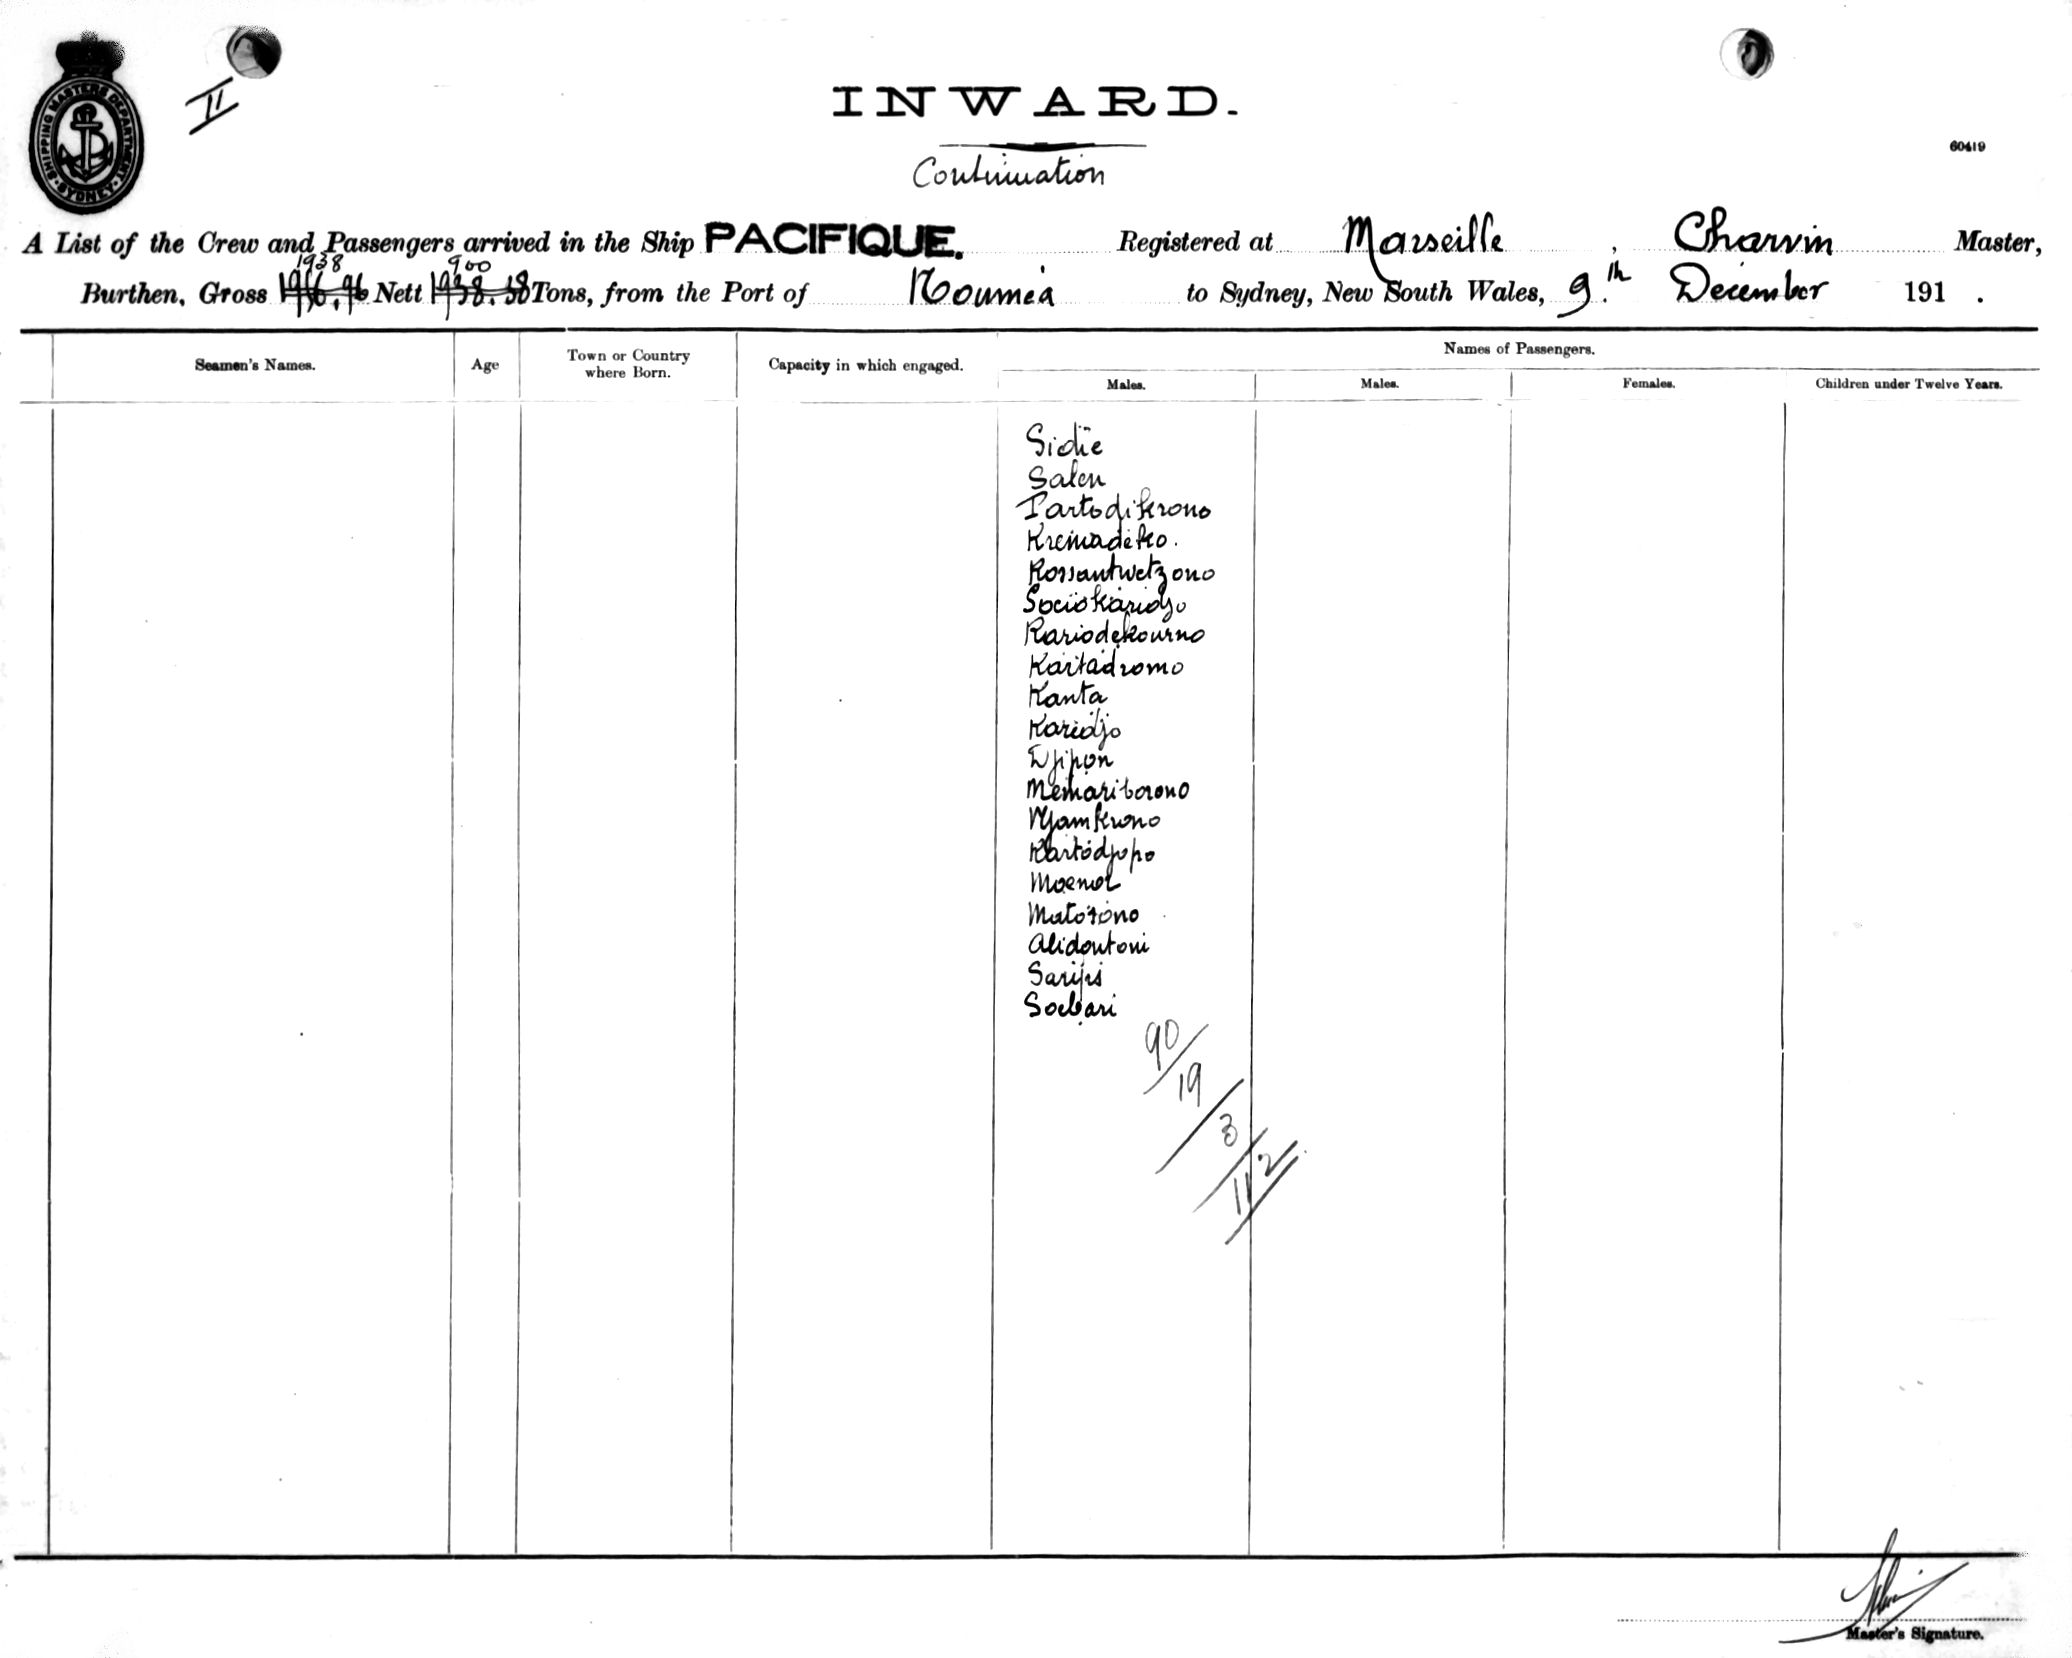 SHIPPING MASTERS DEPARTMENT · SYDNEY ·
II
INWARD.
Continuation
60419
A List of the Crew and Passengers arrived in the Ship PACIFIQUE. Registered at Marseille, Charvin Master,
1938 900
Burthen, Gross 1916.96 Nett 1938.58 Tons, from the Port of Nouméa to Sydney, New South Wales, 9.th December 191 .
Seamen's Names. Age Town or Country where Born. Capacity in which engaged. Names of Passengers.
Males. Males. Females. Children under Twelve Years.
Sidie
Salen
Partodikrono
Kremadeko.
Kossantwetzono
Sociokaridjo
Kariodekourno
Kartadromo
Kanta
Karidjo
Djipon
Memariborono
Njamkrono
Kartodjopo
Moenol
Matorono
Alidontoni
Saripi
Soebari
90
19
3
112
Master's Signature.